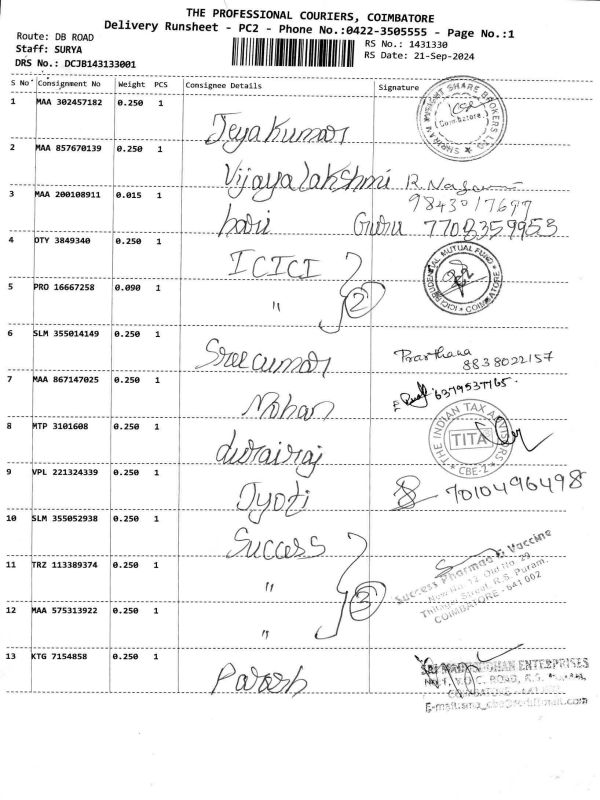 THE PROFESSIONAL COURIERS, COIMBATORE
Delivery Runsheet - PC2 - Phone No.:0422-3505555 - Page No.:1
Route: DB ROAD
Staff: SURYA
DRS No.: DCJB143133001
RS No.: 1431330
RS Date: 21-Sep-2024
S No Consignment No Weight PCS Consignee Details Signature
1 MAA 302457182 0.250 1 Jeyakumar
SHARE BROKERS LTD
(Coimbatore)
2 MAA 857670139 0.250 1 Vijayalakshmi
9843017697
3 MAA 200108911 0.015 1 hari Guru 7708359953
4 OTY 3849340 0.250 1 ICICI
ICICI PRUDENTIAL MUTUAL FUND
COIMBATORE
5 PRO 16667258 0.090 1 " 2
6 SLM 355014149 0.250 1 Sreecumar Prarthana
8838022157
7 MAA 867147025 0.250 1 Mohan 6379537765
8 MTP 3101608 0.250 1 durairaj
THE INDIAN TAX ADVISORS
TITA
CBE-2
9 VPL 221324339 0.250 1 Jyoti 7010496498
10 SLM 355052938 0.250 1 Success
11 TRZ 113389374 0.250 1 "
Success Pharmaa & Vaccine
New No. 12 Old No. 29
Thilagar Street, R.S. Puram,
COIMBATORE - 641 002
12 MAA 575313922 0.250 1 " 3
13 KTG 7154858 0.250 1 Paresh
SRI MADHUSUDHAN ENTERPRISES
ROAD, R.S.